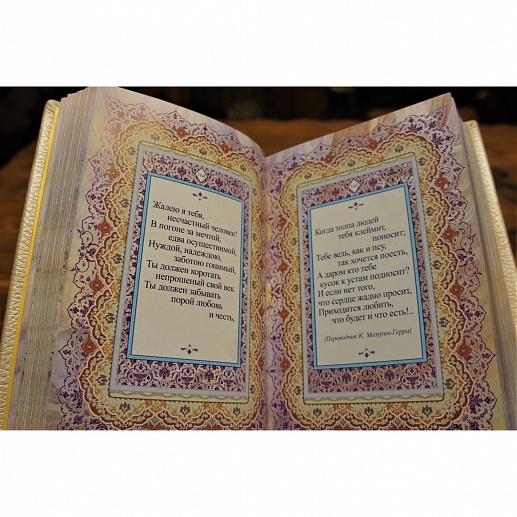 Жалею я тебя,
несчастный человек!
В погоне за мечтой,
едва осуществимой,
Нуждой, надеждою,
заботою гонимый,
Ты должен коротать
непрошеный свой век.
Ты должен забывать
порой любовь
и честь,
Когда толпа людей
тебя клеймит,
поносит;
Тебе ведь, как и псу,
так хочется поесть,
А даром кто тебе
кусок к устам подносит?
И если нет того,
что сердце жадно просит,
Приходится любить,
что будет и что есть!..
(Переводчик К. Мазурин-Герра)